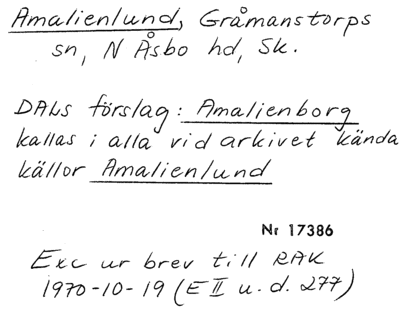 Amalienlund, Gråmanstorps
sn, N Åsbo hd, Sk.
DALs förslag: Amalienborg
kallas i alla vid arkivet kända
källor Amalienlund
Nr 17386
Exc ur brev till RAK
1970-10-19 (E II u. d. 277)